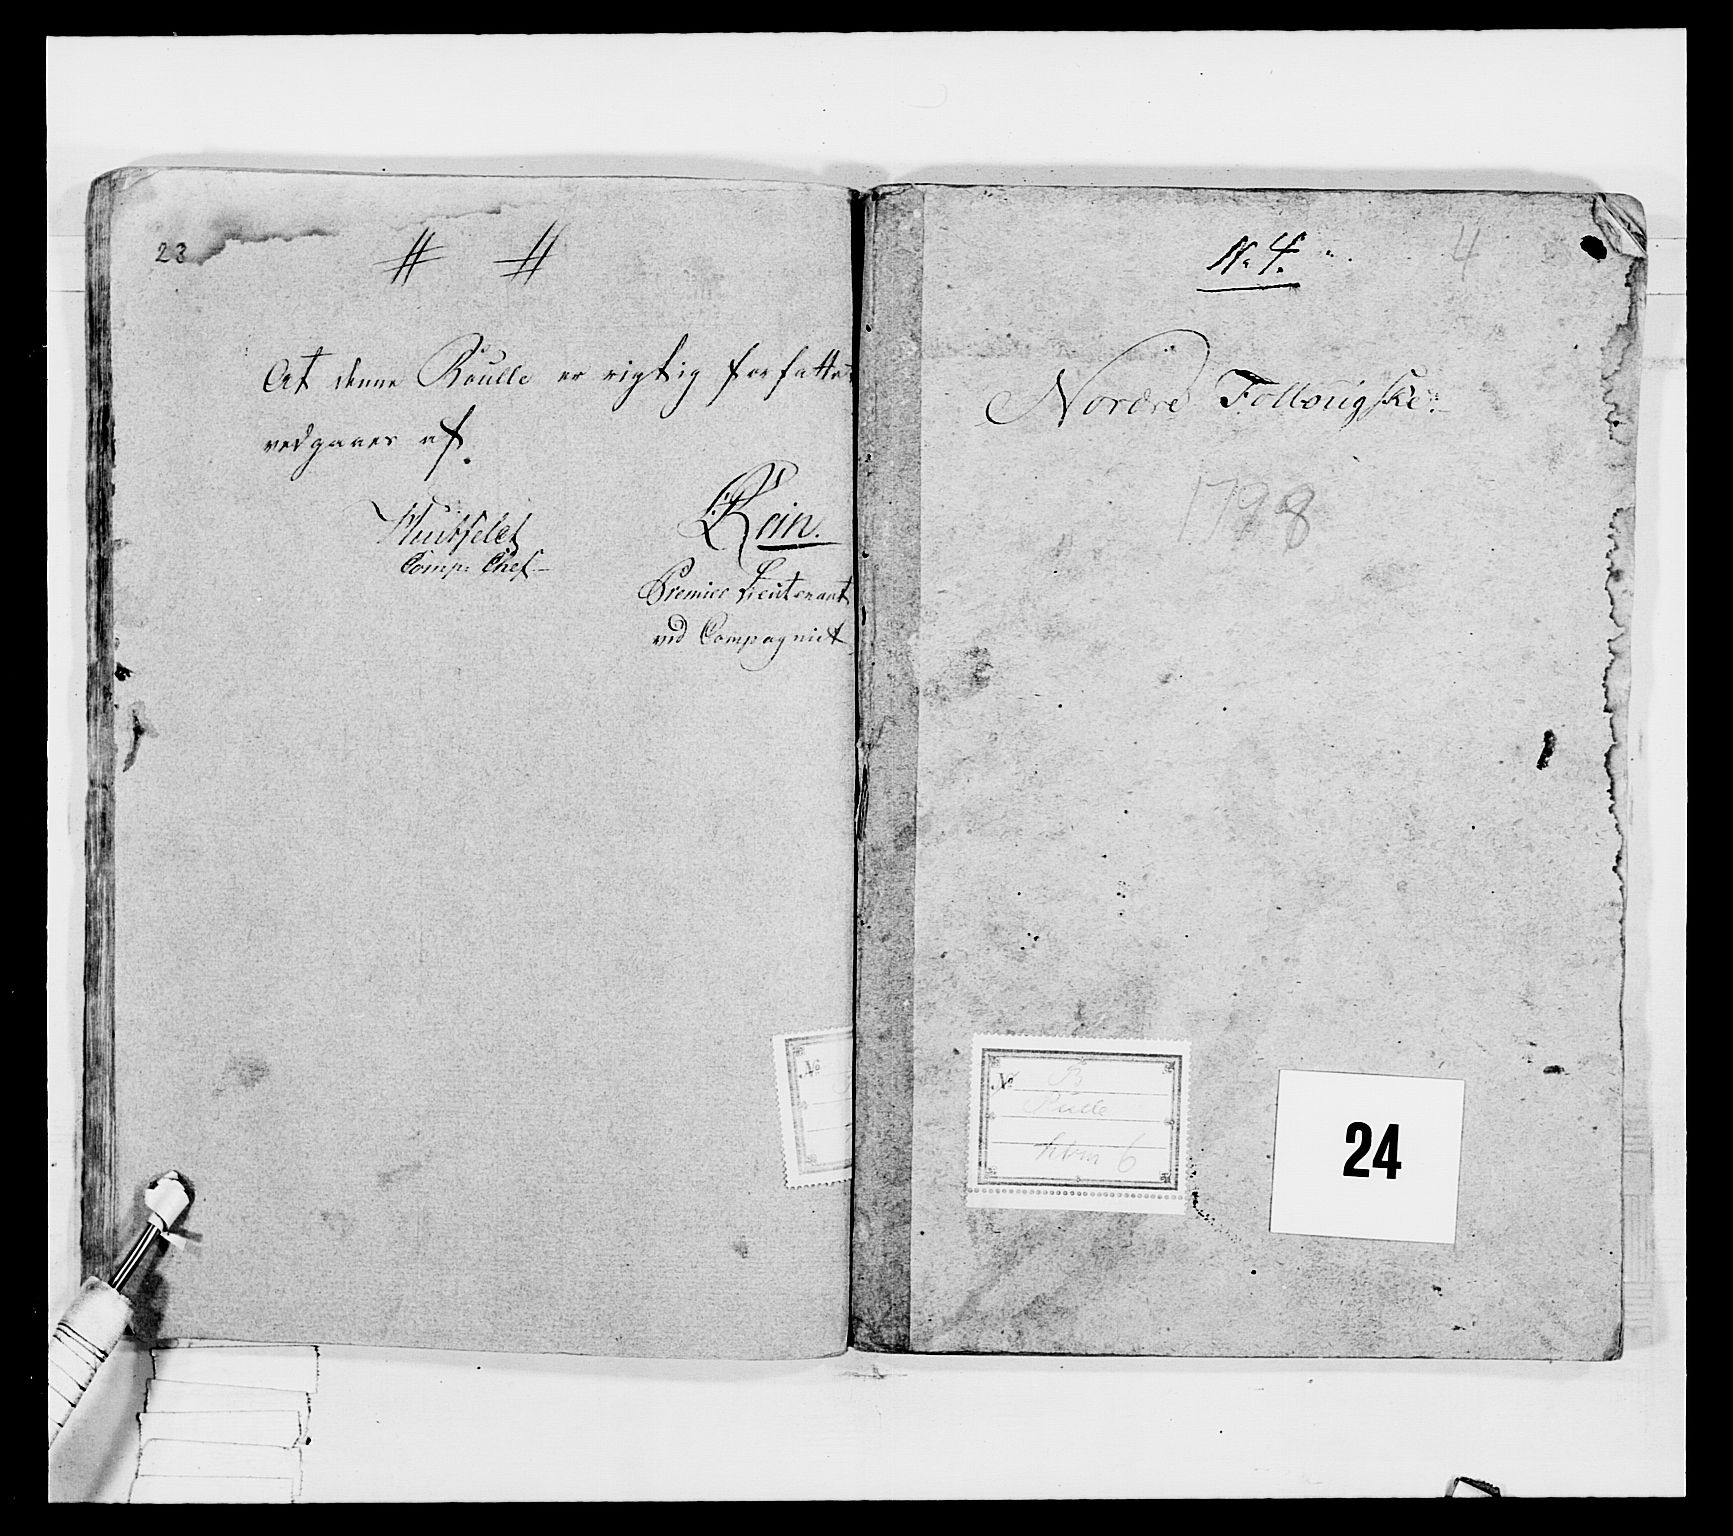 23
# #
At denne Roulle er rigtig forfattet
vedgaaes af.
Huitfeldt
Comp: Chef
Rein.
Premier Lieutenant
ved Compagniet
№
N: 4.
4
Nordre Follougske
1798
№ B
Rulle
6
24